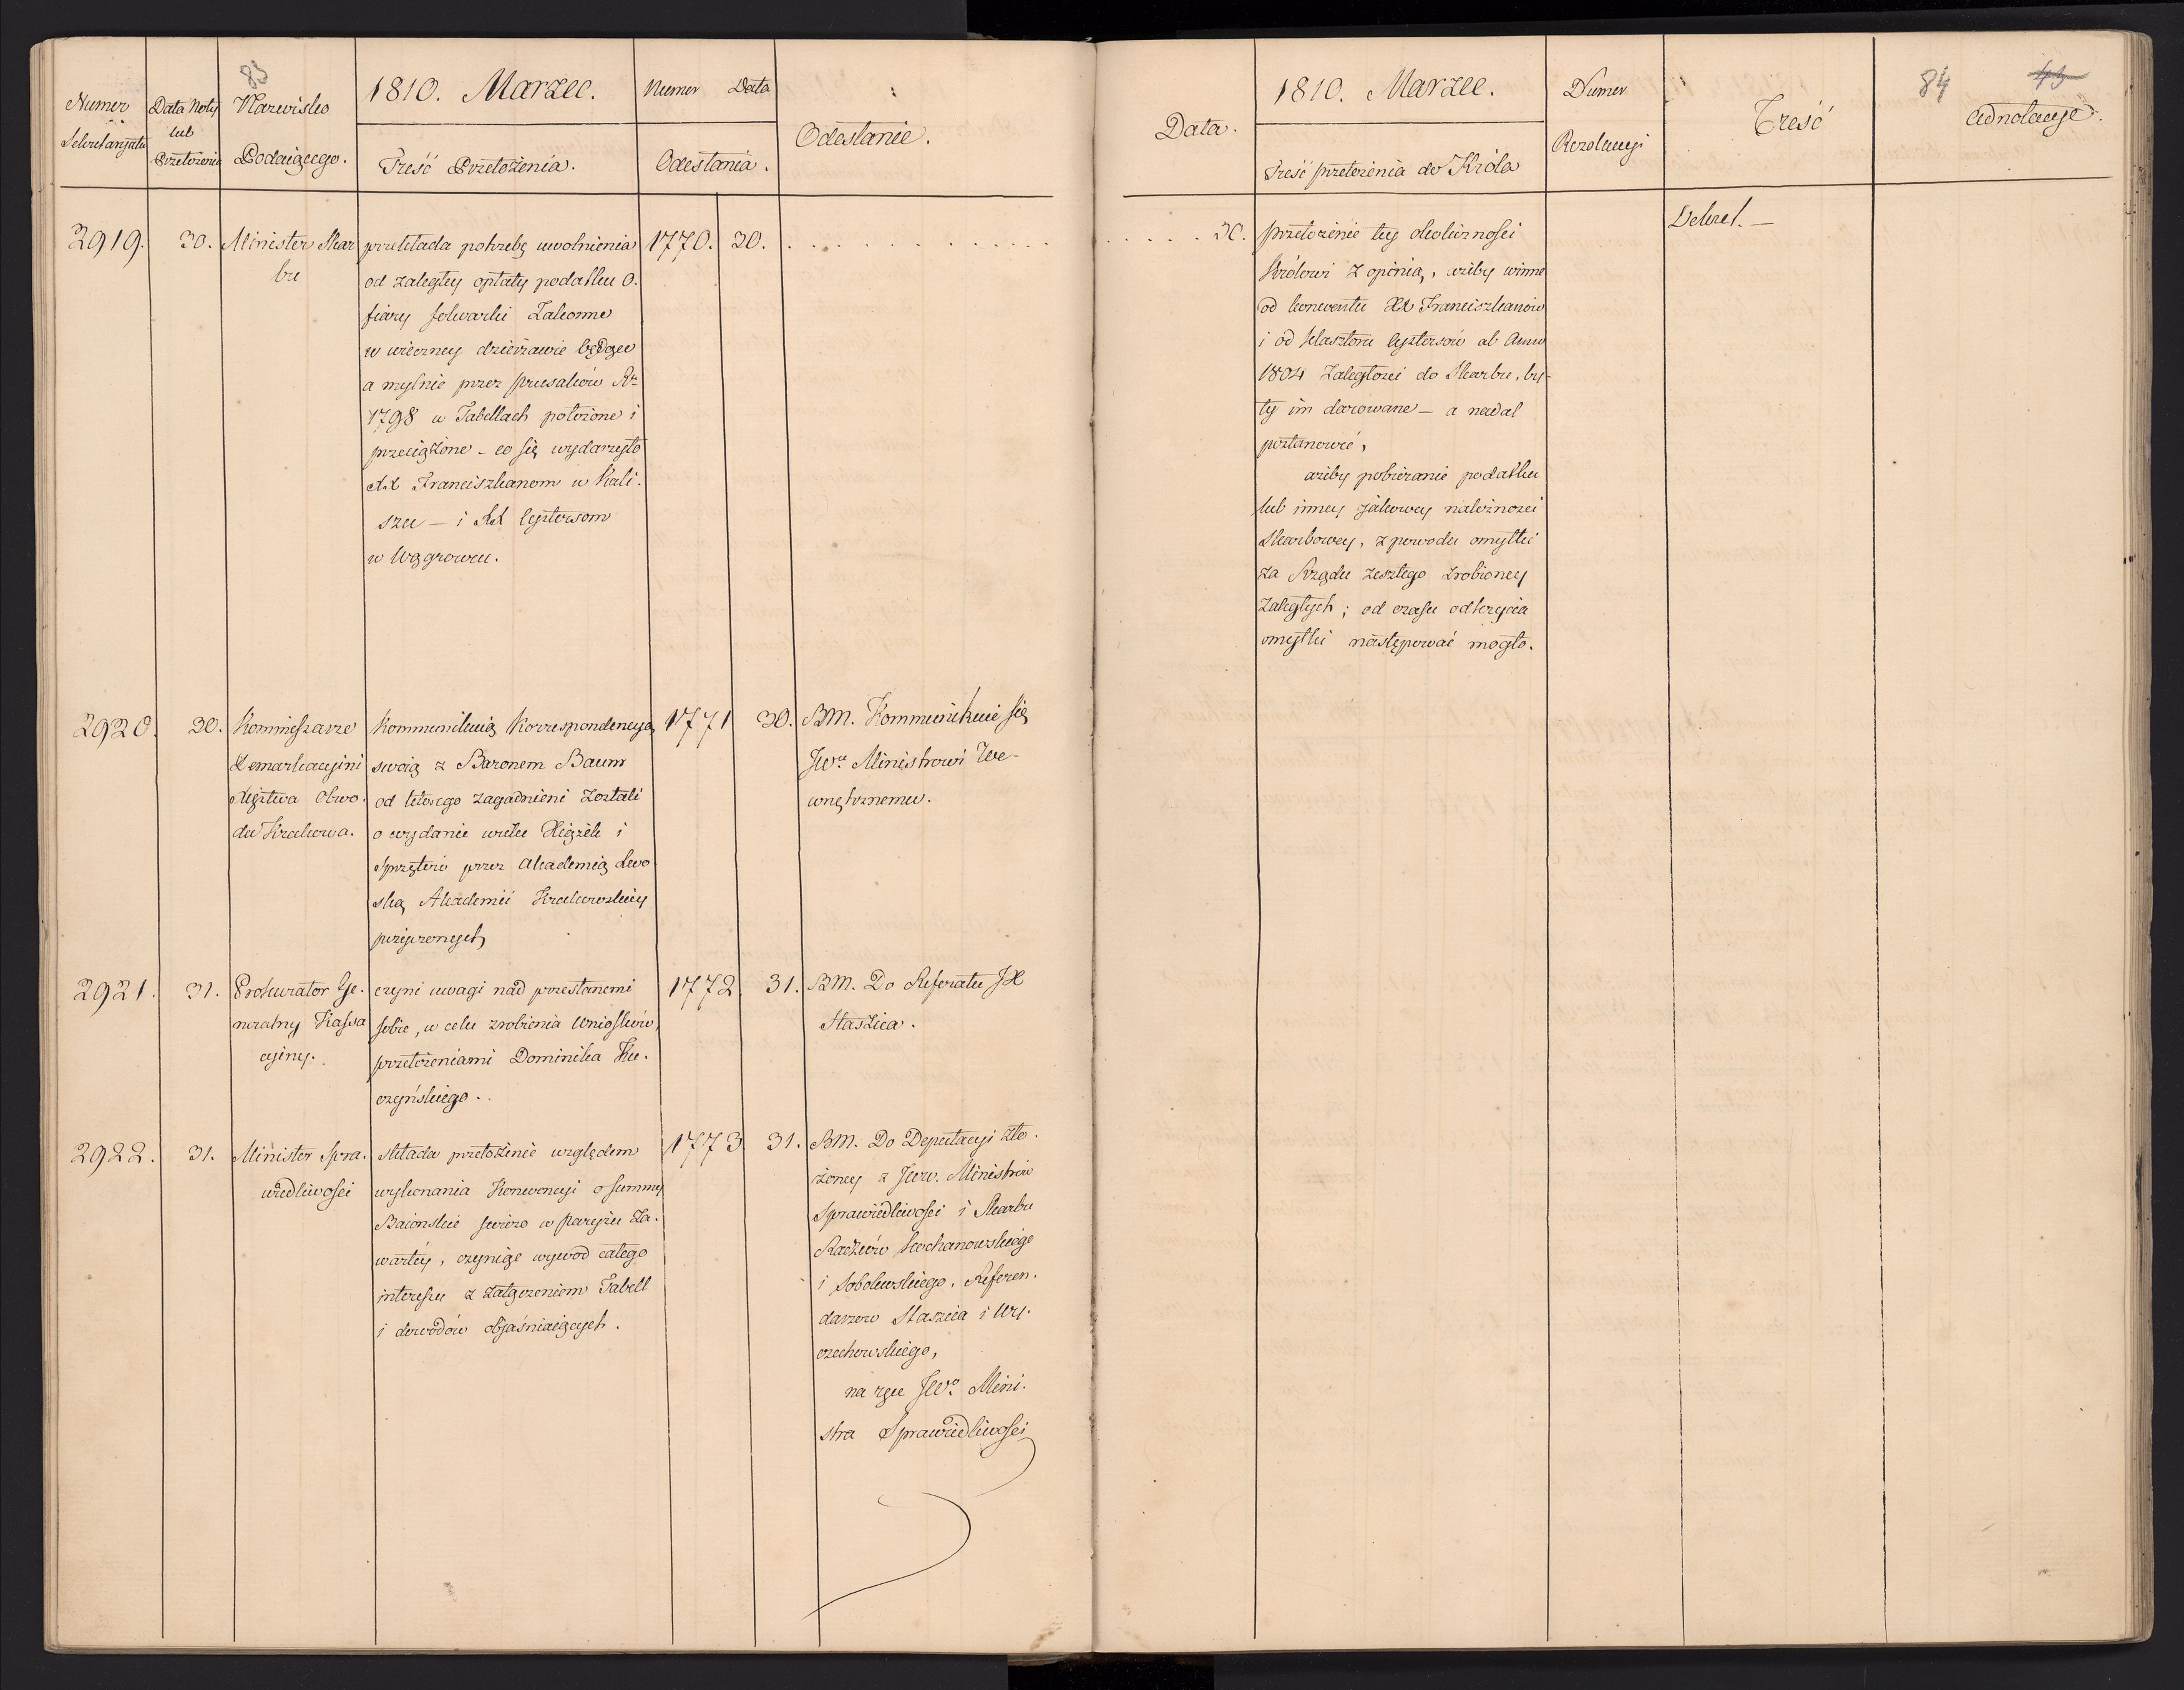 83
Numer
Sekretaryatu
Data Noty
lub
Przełożenia
Nazwisko
Podaiącego.
1810. Marzec.
Treść Przełożenia.
Numer Data
Odesłania.
Odesłanie.
2919. 30. Minister Skar
bu
przekłada potrzebę uwolnienia
od zaległey opłaty podatku O.
fiary folwarki Zakonne
w wieczney dzierżawie będące
a mylnie przez Prusaków Rku
1798 w Tabellach położone i
przeciążone - co się wydarzyło
XX Franciszkanom w Kali.
szu — i XX Cystersom
w Wągrowcu.
1770. 30.
2920. 30. Kommissarze
Demarkacyini
Xięstwa Obwo.
du Krakowa.
Kommunikuią Korrespondencyą
swoią z Baronem Baum
od którego zagadnieni zostali
o wydanie wielu Xiążek i
Sprzętów przez Akademią Lwo
ską Akademii Krakowskiey
pożyczonych
1771 30. BM. Kommunikuie się
JWu Ministrowi We-
wnętrznemu.
2921. 31. Prokurator Ge.
neralny Kassa
cyiny.
czyni uwagi nad przesłanemi
sobie, w celu zrobienia Wniosków,
przełożeniami Dominika Ku.
czyńskiego.
1772. 31. BM. Do Referatu JX
Staszica.
2922. 31. Minister Spra.
wiedliwości
składa przełożenie względem
wykonania Konwencyi o summy
Baiońskie świeżo w Paryżu za.
wartéy, czyniąc wywód całego
interessu z załączeniem Tabell
i dowodów obiaśniaiących.
1773 31. BM. Do Deputacyi zło.
żoney z JWW. Ministrów
Sprawiedliwości i Skarbu
Radzców Kochanowskiego
i Sobolewskiego, Referen.
darzów Staszica i Wy.
czechowskiego,
na ręce JWo Mini.
stra Sprawiedliwości
84
43
Data.
1810. Marzec.
Treść przełożenia do Króla
Numer
Rezolucyi
Treść
Adnotacye.
30. przełożenie tey okoliczności
Królowi z opinią, ażeby winne
od konwentu XX Franciszkanów
i od Klasztoru Cystersów ab Anno
1804 zaległości do Skarbu, by-
ły im darowane — a nadal
postanowić,
ażeby pobieranie podatku
lub inney jakowey należności
Skarbowey, z powodu omyłki
za Rządu zeszłego zrobioney
zaległych; od czasu odkrycia
omyłki następować mogło.
Dekret. —